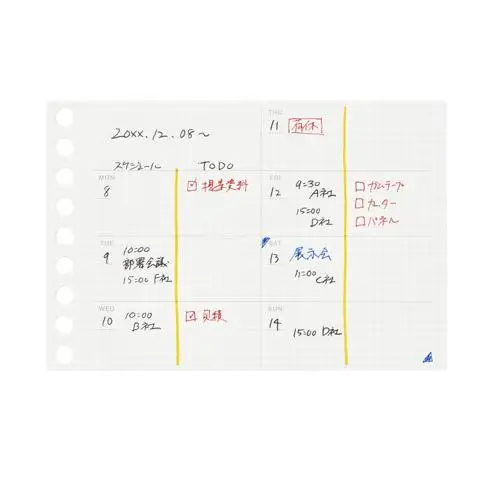 20XX.12.08～
スケジュール TODO
MON
8
提案資料
TUE
9
10:00
部署会議
15:00 F社
WED
10
10:00
B社
見積
THU
11
有休
FRI
12
9:30
A社
15:00
D社
ガムテープ
カッター
パネル
SAT
13
展示会
11:00
C社
SUN
14
15:00 D社